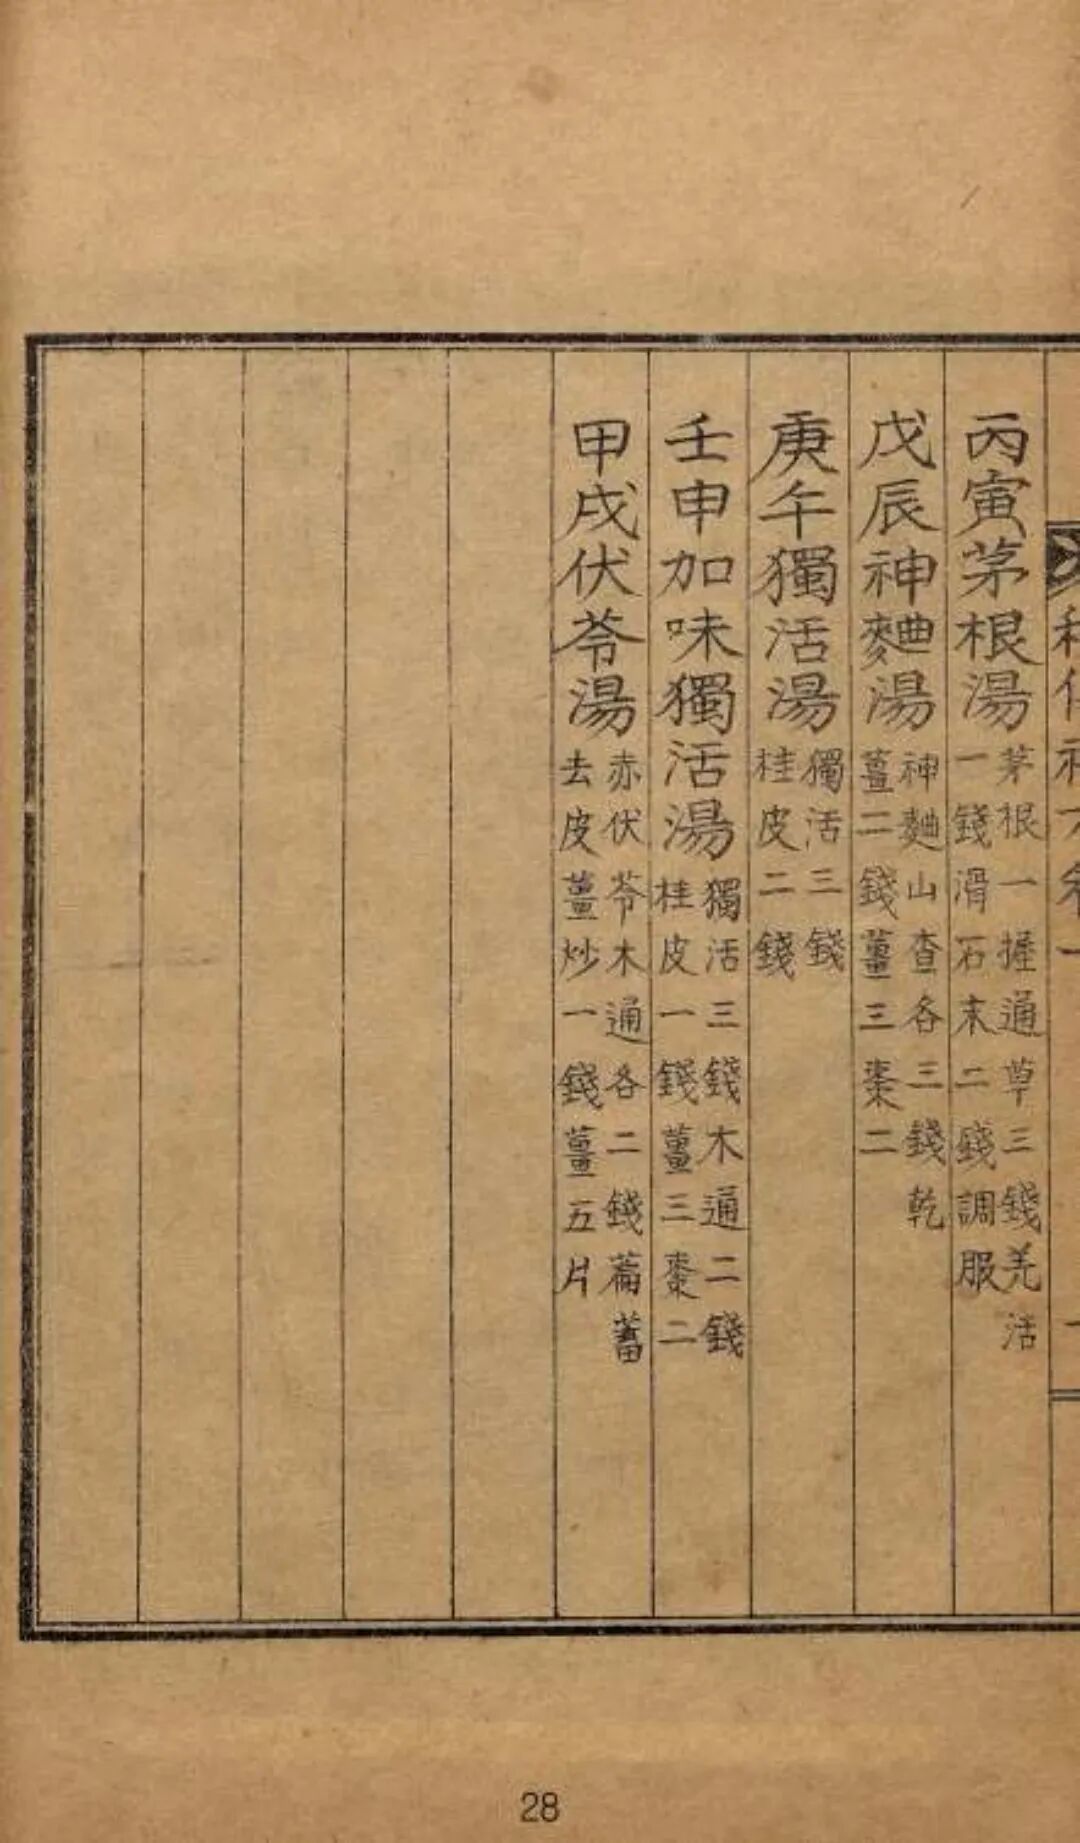 丙寅茅根湯 茅根一握通草三錢羌活
一錢滑石末二錢調服
戊辰神麯湯 神麯山査各三錢乾
薑二錢薑三棗二
庚午獨活湯 獨活三錢
桂皮二錢
壬申加味獨活湯 獨活三錢木通二錢
桂皮一錢薑三棗二
甲戌伏苓湯 赤伏苓木通各二錢萹蓄
去皮薑炒一錢薑五片
28